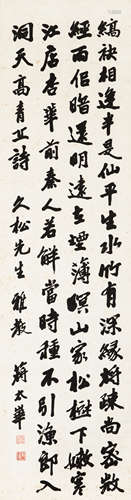 縞袂相逢半是仙平生水竹有深緣將疎尚密微
經雨佀暗還明遠在煙薄暝山家松樹下嫩寒
江店杏華前秦人若解當時種不引漁郎入
洞天高青丘詩 久松先生雅教 蔣太華